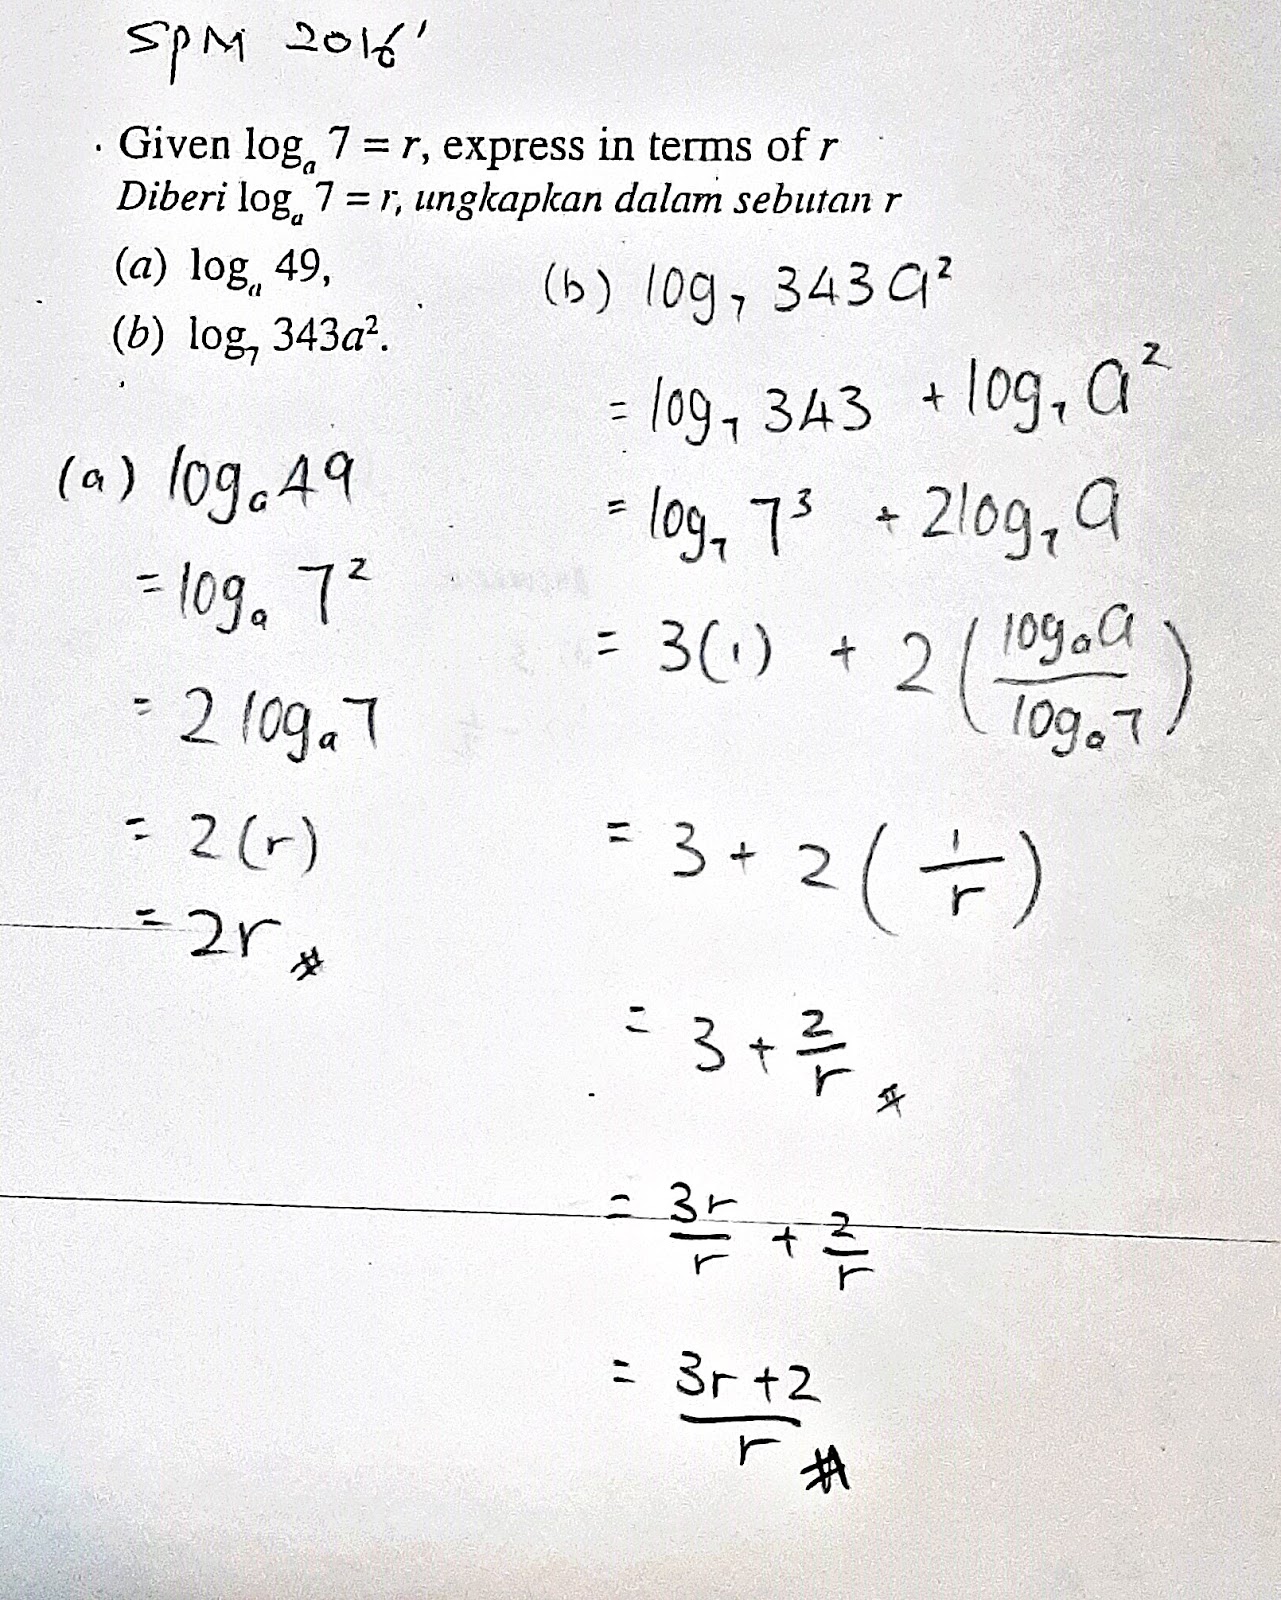 SPM 2016'
. Given logₐ 7 = r, express in terms of r
Diberi logₐ 7 = r, ungkapkan dalam sebutan r
(a) logₐ 49,
(b) log₇ 343a².
(a) logₐ 49
= logₐ 7²
= 2 logₐ 7
= 2(r)
= 2r #
(b) log₇ 343a²
= log₇ 343 + log₇ a²
= log₇ 7³ + 2log₇ a
= 3(1) + 2(logₐ a / logₐ 7)
= 3 + 2(1/r)
= 3 + 2/r #
= 3r/r + 2/r
= 3r+2/r #